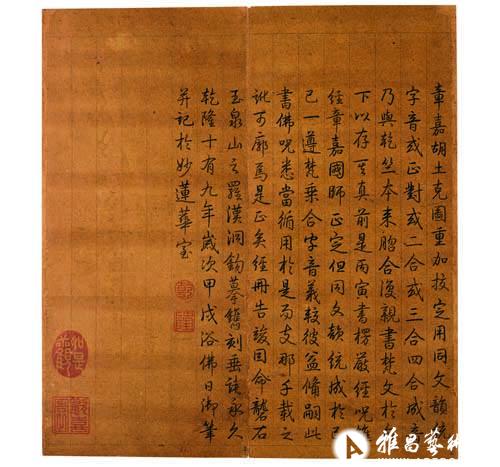 章嘉胡土克圖重加挍定用同文韻
字音或正對或二合或三合四合成音
乃與乾竺本来脗合復親書梵文於
下以存其真前是丙寅書楞嚴經咒
經章嘉國師正定但同文韻統成於己
已一遵梵乗合字音義較彼益備嗣此
書佛咒悉當循用於是而支那千載之
訛可廓焉是正矣經冊告竣因命礱石
玉泉山之羅漢洞鈎摹鐫刻垂誌永久
乾隆十有九年歲次甲戌浴佛日御筆
并記於妙蓮華室
雅昌藝術